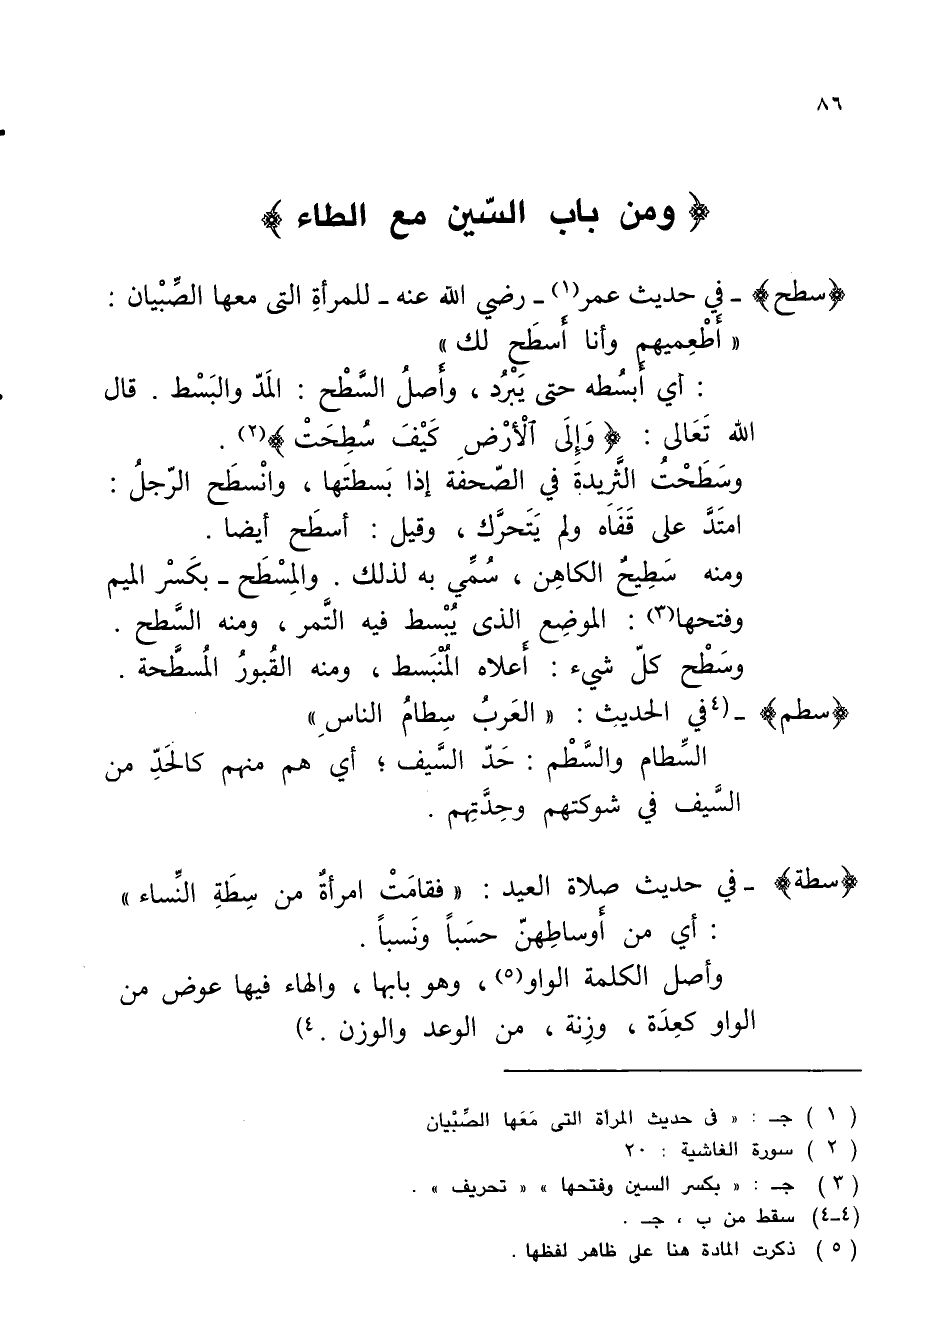 ٨٦
﴿ ومن باب السّين مع الطاء ﴾
﴿سطح﴾ ـ في حديث عمر(١) ـ رضي الله عنه ـ للمرأةِ التى معها الصِّبْيان :
« أَطْعِميهم وأنا أَسطَح لك »
: أي أَبسُطه حتى يَبْرُد ، وأَصلُ السَّطْح : المَدّ والبَسْط . قال
الله تَعَالى : ﴿ وَإِلَى ٱلْأَرْضِ كَيْفَ سُطِحَتْ ﴾(٢) .
وسَطَحْتُ الثَّرِيدةَ في الصّحفة إذا بَسطتَها ، وانْسطَح الرّجلُ :
امتَدَّ على قَفَاه ولم يَتَحرَّك ، وقيل : أسطَح أيضا .
ومنه سَطِيحٌ الكاهِن ، سُمِّي به لذلك . والمِسْطَح ـ بكَسْر الميم
وفتحها(٣) : الموضِع الذى يُبْسط فيه التَّمر ، ومنه السَّطح .
وسَطْح كلّ شيء : أَعلاه المُنْبَسط ، ومنه القُبورُ المُسطَّحة .
﴿سطم﴾ ـ (٤في الحديث : « العَربُ سِطامُ الناسِ »
السِّطام والسَّطْم : حَدّ السَّيف ؛ أي هم منهم كالحَدِّ من
السَّيف في شوكتهم وحِدَّتِهم .
﴿سطة﴾ ـ في حديث صلاة العيد : « فقامَتْ امرأةٌ من سِطَةِ النِّساء »
: أي من أَوساطِهنّ حسَباً ونَسباً .
وأصل الكلمة الواو(٥) ، وهو بابها ، والهاء فيها عوض من
الواو كعِدَة ، وزِنة ، من الوعد والوزن . ٤)
( ١ ) جـ : « فى حديث المرأة التى مَعَها الصِّبْيان
( ٢ ) سورة الغاشية : ٢٠
( ٣ ) جـ : « بكسر السين وفتحها » « تحريف » .
(٤ـ٤) سقط من ب ، جـ .
( ٥ ) ذكرت المادة هنا على ظاهر لفظها .